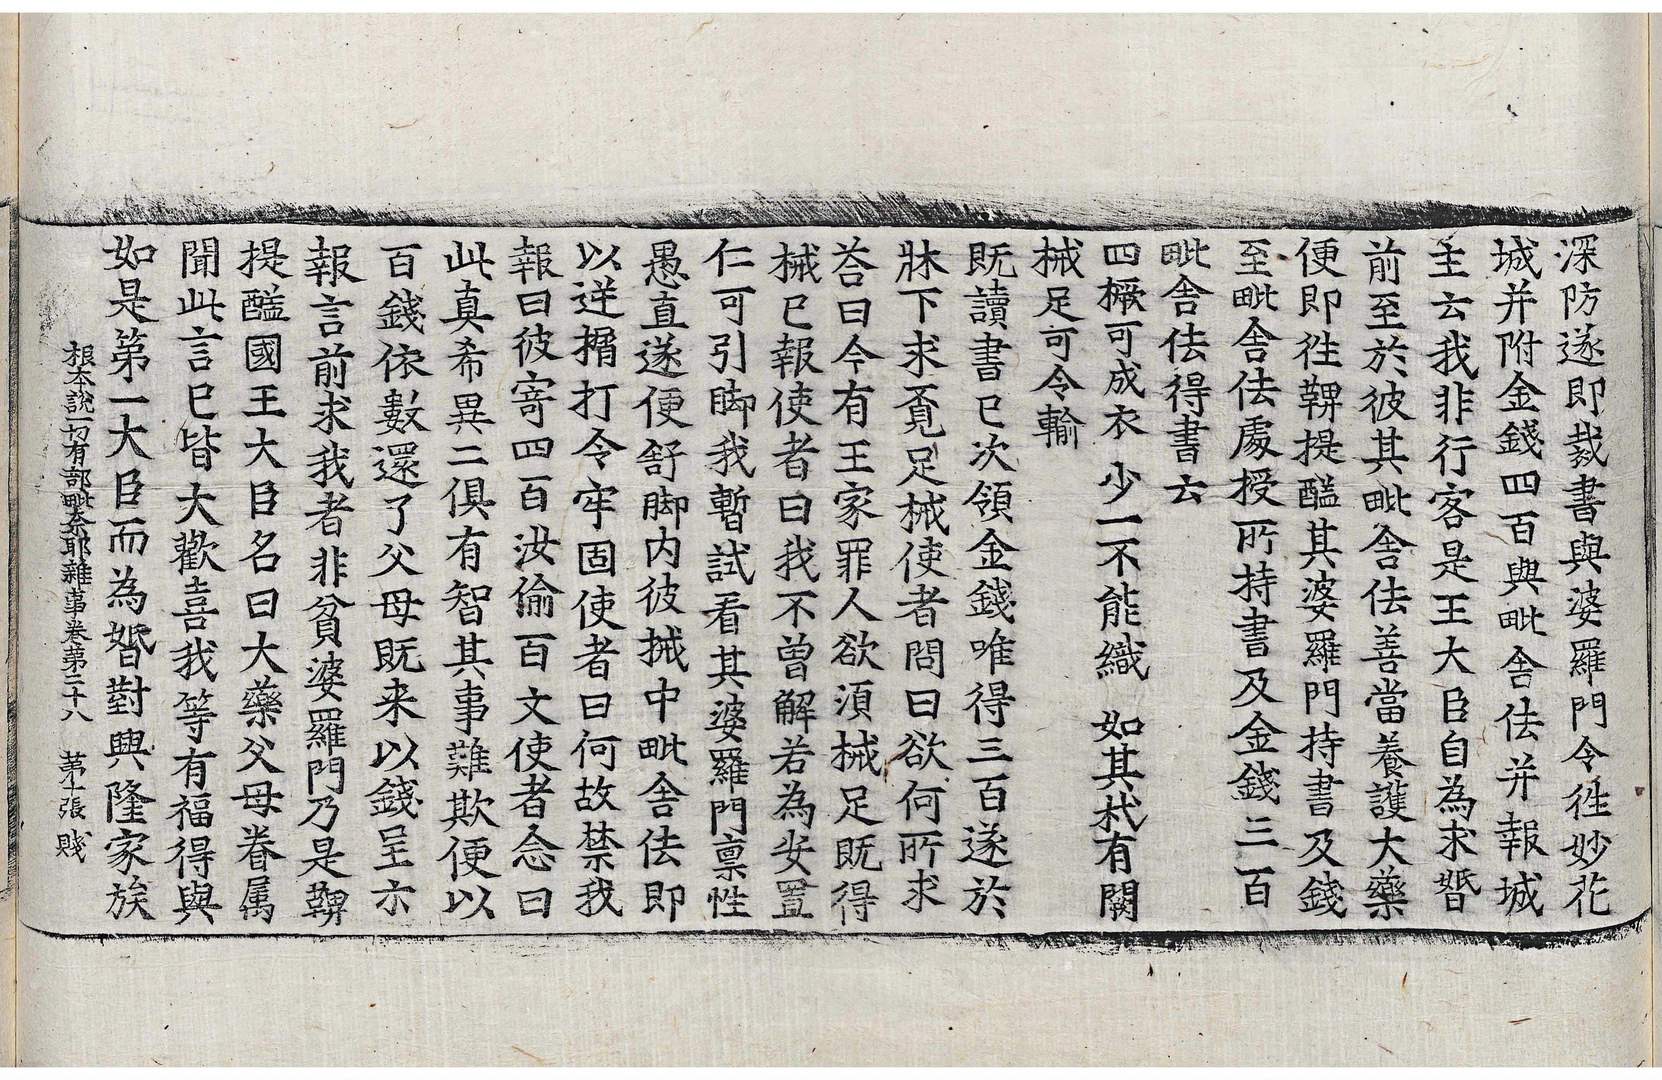 深防遂即裁書與婆羅門令徃妙花
城并附金錢四百與毗舍佉并報城
主云我非行客是王大臣自為求婚
前至於彼其毗舍佉善當養護大藥
便即徃鞞提醯其婆羅門持書及錢
至毗舍佉處授所持書及金錢三百
毗舍佉得書云
四橛可成衣 少一不能織 如其杙有闕
械足可令輸
既讀書已次領金錢唯得三百遂於
牀下求覔足械使者問曰欲何所求
荅曰今有王家罪人欲須械足既得
械已報使者曰我不曾解若為安置
仁可引脚我暫試看其婆羅門禀性
愚直遂便舒脚内彼械中毗舍佉即
以逆揟打令牢固使者曰何故禁我
報曰彼寄四百汝偷百文使者念曰
此真希異二俱有智其事難欺便以
百錢依數還了父母既来以錢呈示
報言前求我者非貧婆羅門乃是鞞
提醯國王大臣名曰大藥父母眷属
聞此言已皆大歡喜我等有福得與
如是第一大臣而為婚對興隆家族
根本說一切有部毗奈耶雜事卷第二十八 第十張 賤